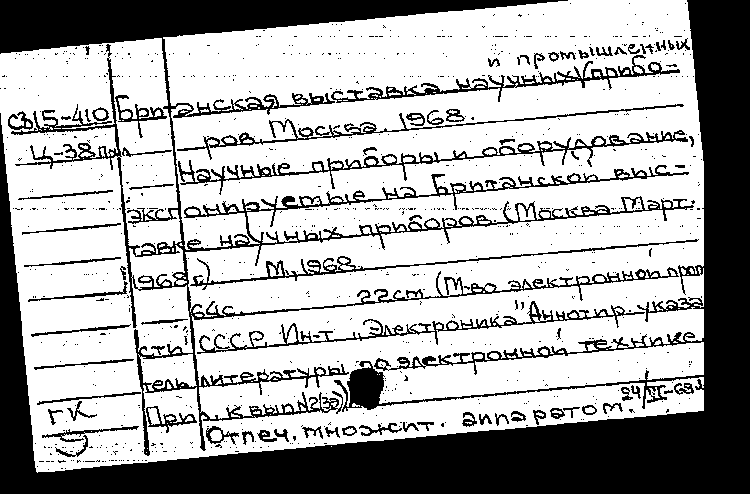 и промышленных
СЗ15-410 Британская выставка научных прибо-
Ц-38 Прил ров. Москва. 1968.
Научные приборы и оборудование,
экспонируемые на Британской выс-
тавке научных приборов. (Москва. Март.
1968 г.) М., 1968.
64с. 22см (М-во электронной пром
сти СССР. Ин-т "Электроника" Аннотир. указа
тель литературы по электронной технике.
Прил. к вып №2(32))
ГК
24/III-69
Отпеч. множит. аппаратом.